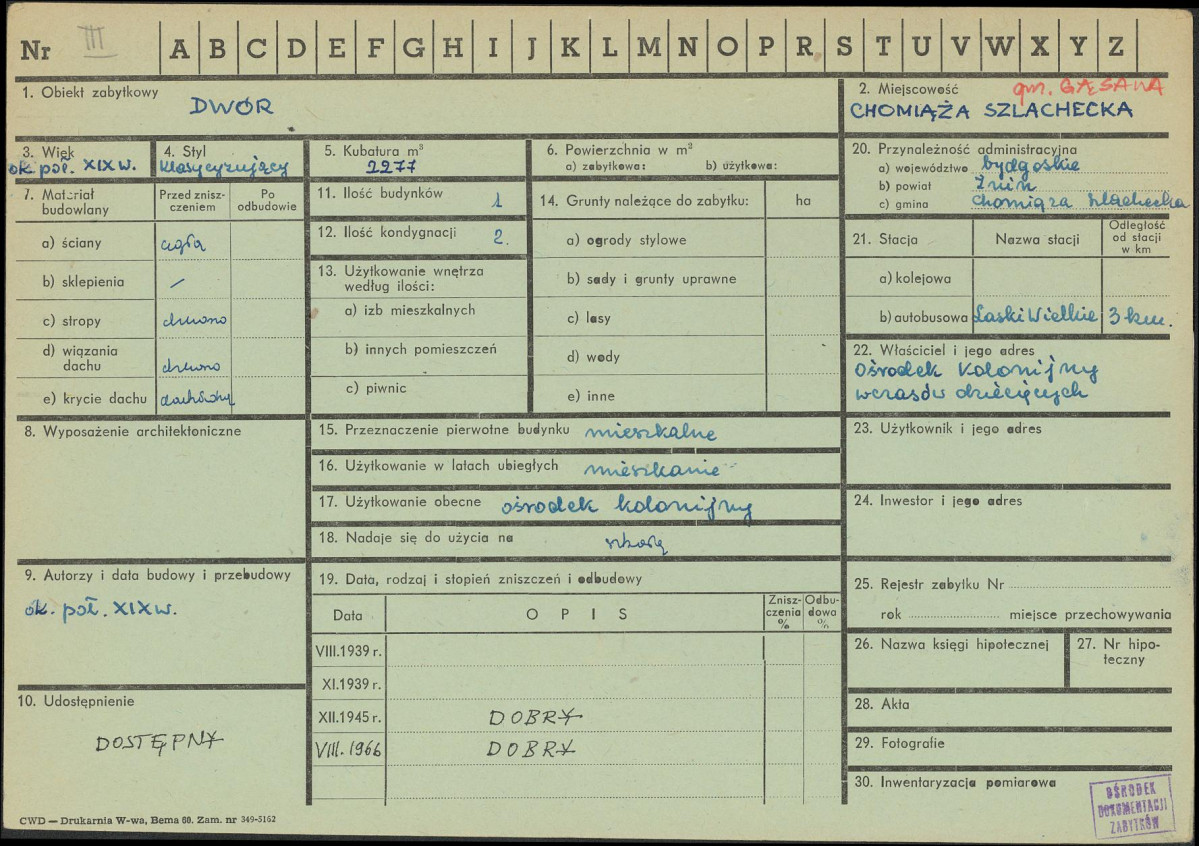 Nr III A B C D E F G H I J K L M N O P R S T U V W X Y Z
1. Obiekt zabytkowy
DWÓR
2. Miejscowość gm. GĄSAWA
CHOMIĄŻA SZLACHECKA
3. Wiek
ok. poł. XIX w.
4. Styl
klasycyzujący
5. Kubatura m³
2277
6. Powierzchnia w m²
a) zabytkowa: b) użytkowa:
20. Przynależność administracyjna
a) województwo bydgoskie
b) powiat Żnin
c) gmina Chomiąża Szlachecka
7. Materiał budowlany
Przed znisz-
czeniem
Po
odbudowie
a) ściany cegła
b) sklepienia /
c) stropy drewno
d) wiązania
dachu drewno
e) krycie dachu dachówka
11. Ilość budynków 1
12. Ilość kondygnacji 2.
13. Użytkowanie wnętrza
według ilości:
a) izb mieszkalnych
b) innych pomieszczeń
c) piwnic
14. Grunty należące do zabytku: ha
a) ogrody stylowe
b) sady i grunty uprawne
c) lasy
d) wody
e) inne
21. Stacja Nazwa stacji
Odległość
od stacji
w km
a) kolejowa
b) autobusowa Laski Wielkie 3 km.
22. Właściciel i jego adres
Ośrodek kolonijny
wczasów dziecięcych
8. Wyposażenie architektoniczne
15. Przeznaczenie pierwotne budynku mieszkalne
16. Użytkowanie w latach ubiegłych mieszkanie
17. Użytkowanie obecne ośrodek kolonijny
18. Nadaje się do użycia na szkołę
23. Użytkownik i jego adres
24. Inwestor i jego adres
9. Autorzy i data budowy i przebudowy
ok. poł. XIX w.
19. Data, rodzaj i stopień zniszczeń i odbudowy
Data OPIS
Znisz-
czenia
%
Odbu-
dowa
%
VIII.1939 r.
XI.1939 r.
XII.1945 r. DOBRY
VIII.1966 DOBRY
25. Rejestr zabytku Nr
rok miejsce przechowywania
26. Nazwa księgi hipotecznej
27. Nr hipo-
teczny
10. Udostępnienie
DOSTĘPNY
28. Akta
29. Fotografie
30. Inwentaryzacja pomiarowa
OŚRODEK
DOKUMENTACJI
ZABYTKÓW
CWD — Drukarnia W-wa, Bema 60. Zam. nr 349-5162